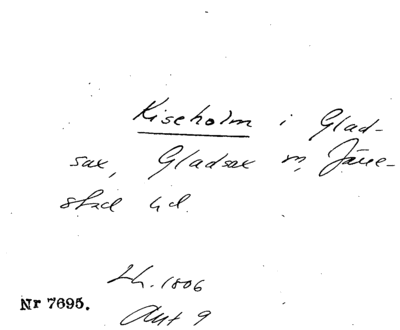 Kiseholm i Glad-
sax, Gladsax m, Järe-
stad hd.
Lh. 1806
Akt 9
Nr 7695.